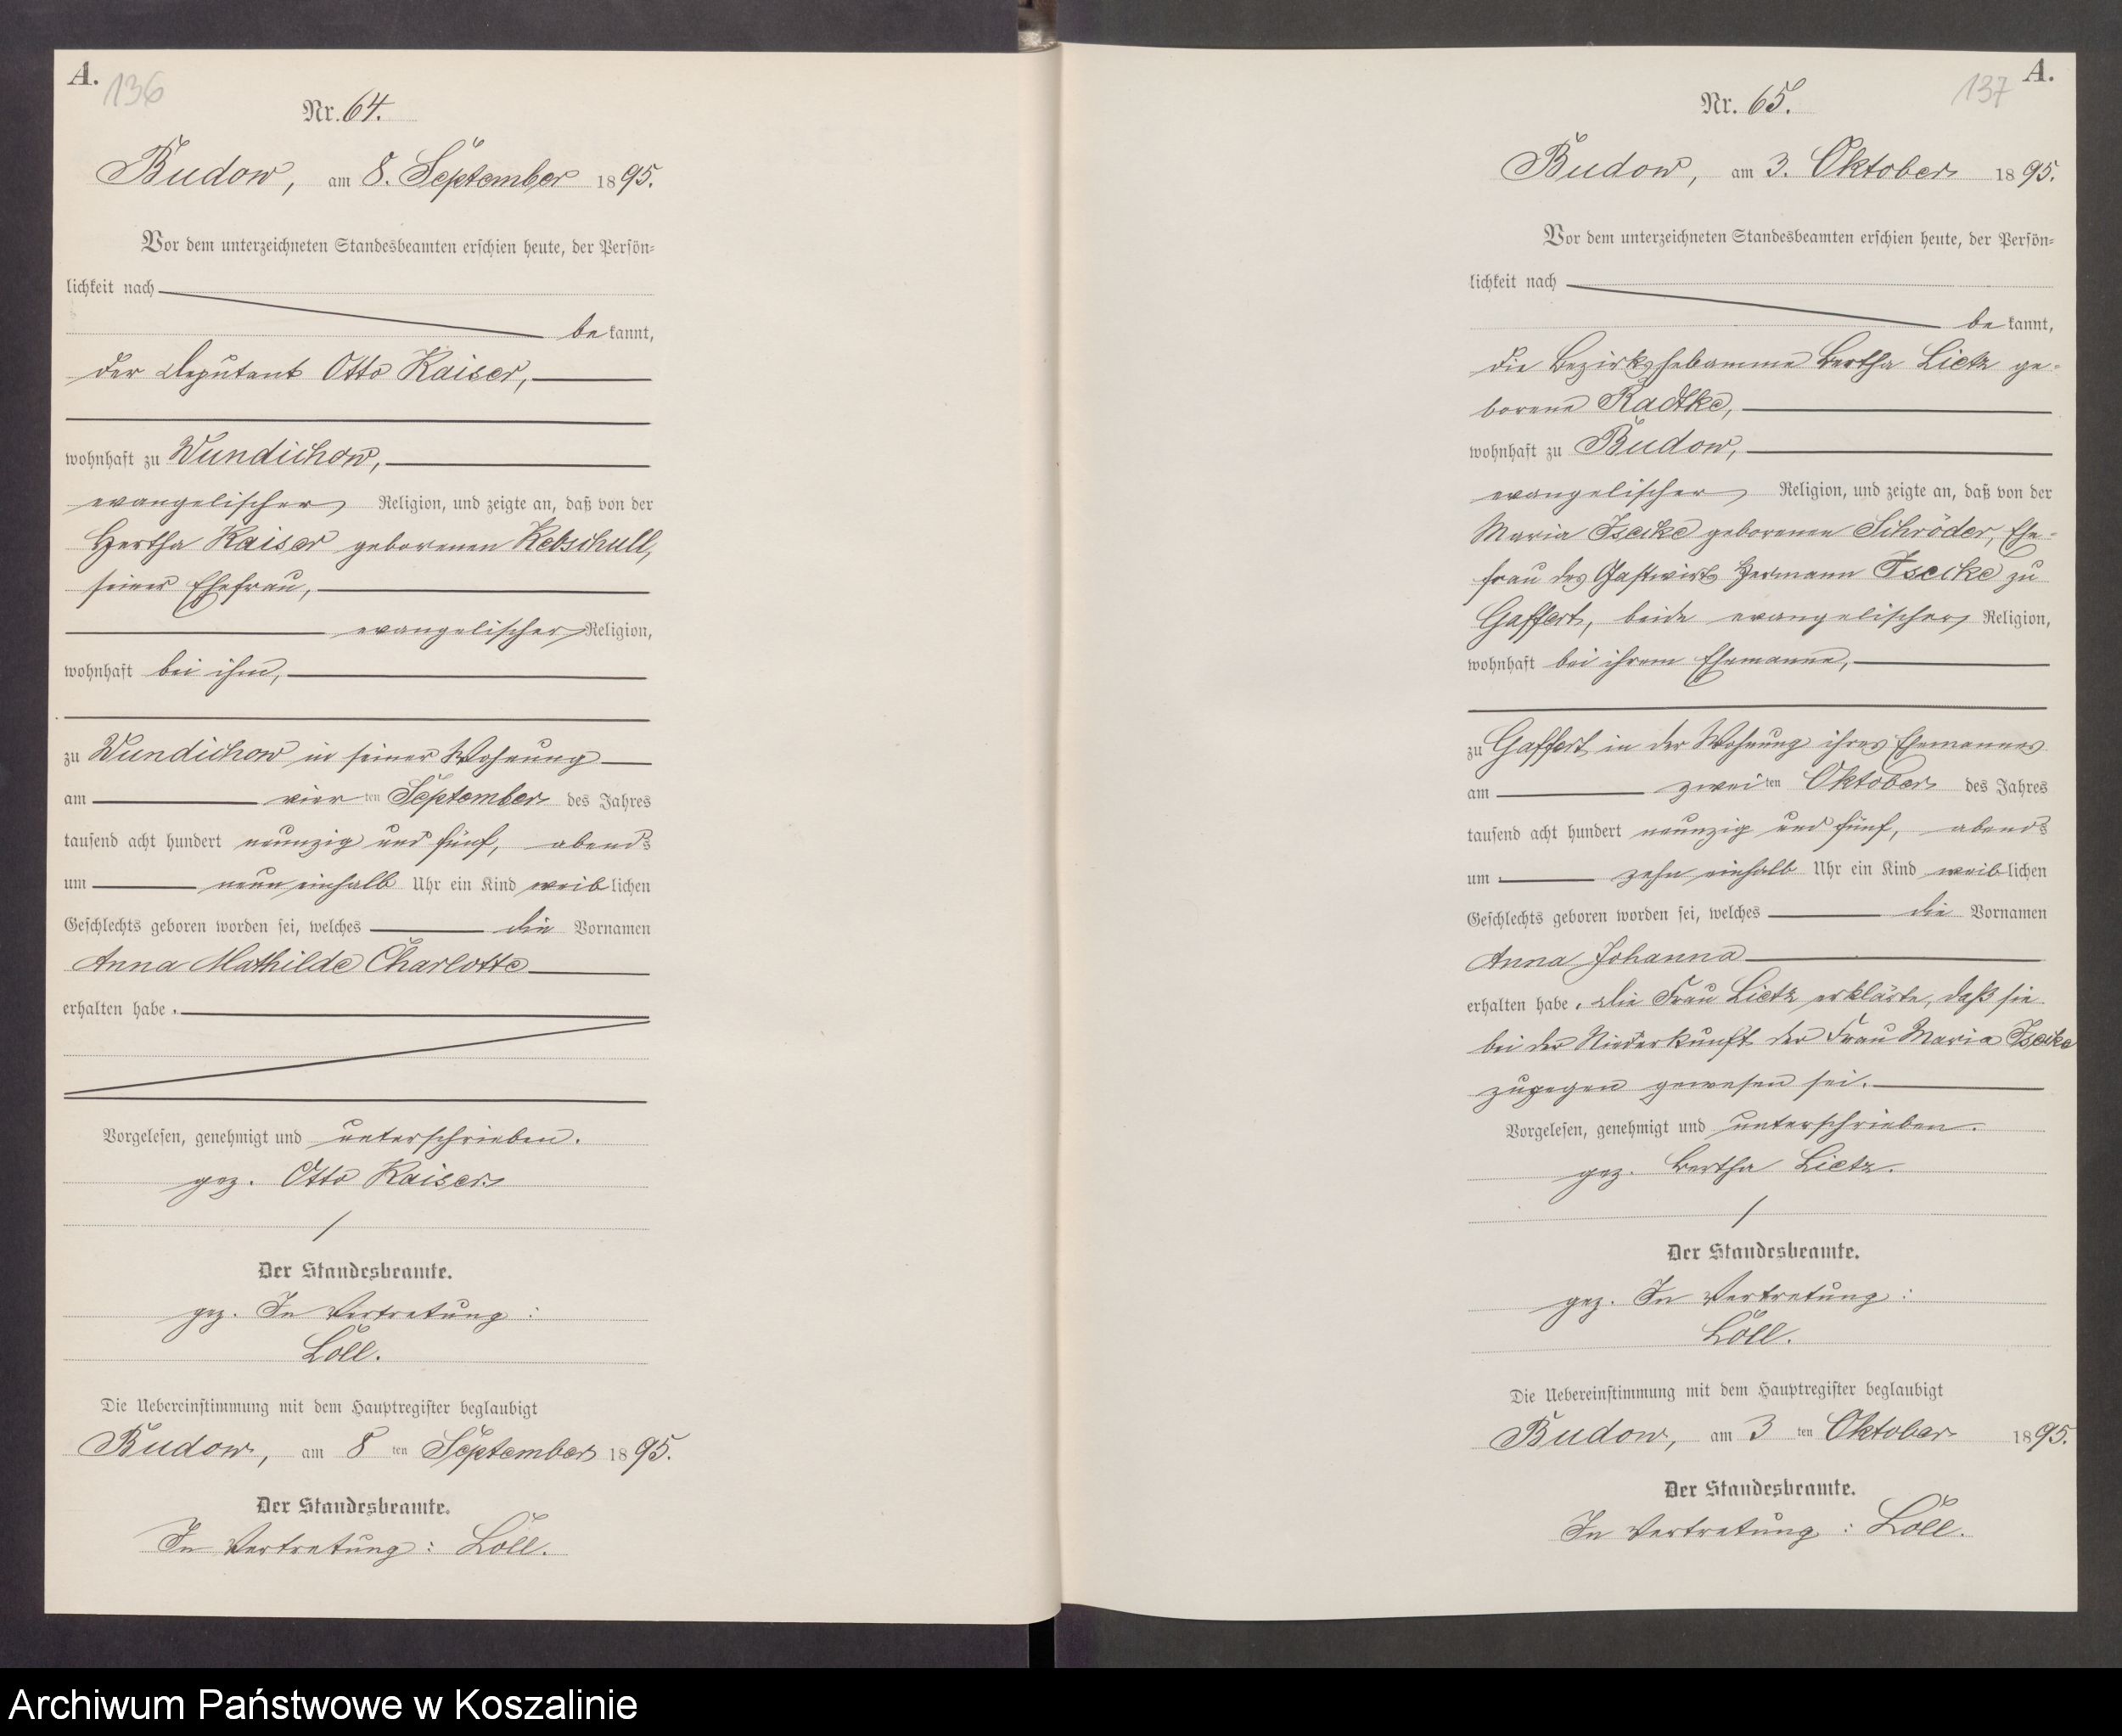 A.
136
Nr. 64.
Budow, am 8. September 1895.
Vor dem unterzeichneten Standesbeamten erschien heute, der Persön-
lichkeit nach
bekannt,
der Deputant Otto Kaiser,
wohnhaft zu Wundichow,
evangelischer Religion, und zeigte an, daß von der
Hertha Kaiser geborenen Kebschull,
seiner Ehefrau,
evangelischer Religion,
wohnhaft bei ihm,
zu Wundichow in seiner Wohnung
am vierten September des Jahres
tausend acht hundert neunzig und fünf, abends
um neun einhalb Uhr ein Kind weiblichen
Geschlechts geboren worden sei, welches die Vornamen
Anna Mathilde Charlotte
erhalten habe.
Vorgelesen, genehmigt und unterschrieben.
gez. Otto Kaiser
Der Standesbeamte.
gez. In Vertretung:
Löll.
Die Uebereinstimmung mit dem Hauptregister beglaubigt
Budow, am 8ten September 1895.
Der Standesbeamte.
In Vertretung: Löll.
A.
137
Nr. 65.
Budow, am 3. Oktober 1895.
Vor dem unterzeichneten Standesbeamten erschien heute, der Persön-
lichkeit nach
bekannt,
die Bezirkshebamme Bertha Lietz ge-
borene Radtke,
wohnhaft zu Budow,
evangelischer Religion, und zeigte an, daß von der
Maria Isecke geborenen Schröder, Ehe-
frau des Gastwirts Hermann Isecke zu
Gaffert, beide evangelischer Religion,
wohnhaft bei ihrem Ehemanne,
zu Gaffert in der Wohnung ihres Ehemannes
am zweiten Oktober des Jahres
tausend acht hundert neunzig und fünf, abends
um zehn einhalb Uhr ein Kind weiblichen
Geschlechts geboren worden sei, welches die Vornamen
Anna Johanna
erhalten habe. Die Frau Lietz erklärte, daß sie
bei der Niederkunft der Frau Maria Isecke
zugegen gewesen sei.
Vorgelesen, genehmigt und unterschrieben.
gez. Bertha Lietz.
Der Standesbeamte.
gez. In Vertretung:
Löll.
Die Uebereinstimmung mit dem Hauptregister beglaubigt
Budow, am 3ten Oktober 1895.
Der Standesbeamte.
In Vertretung: Löll.
Archiwum Państwowe w Koszalinie